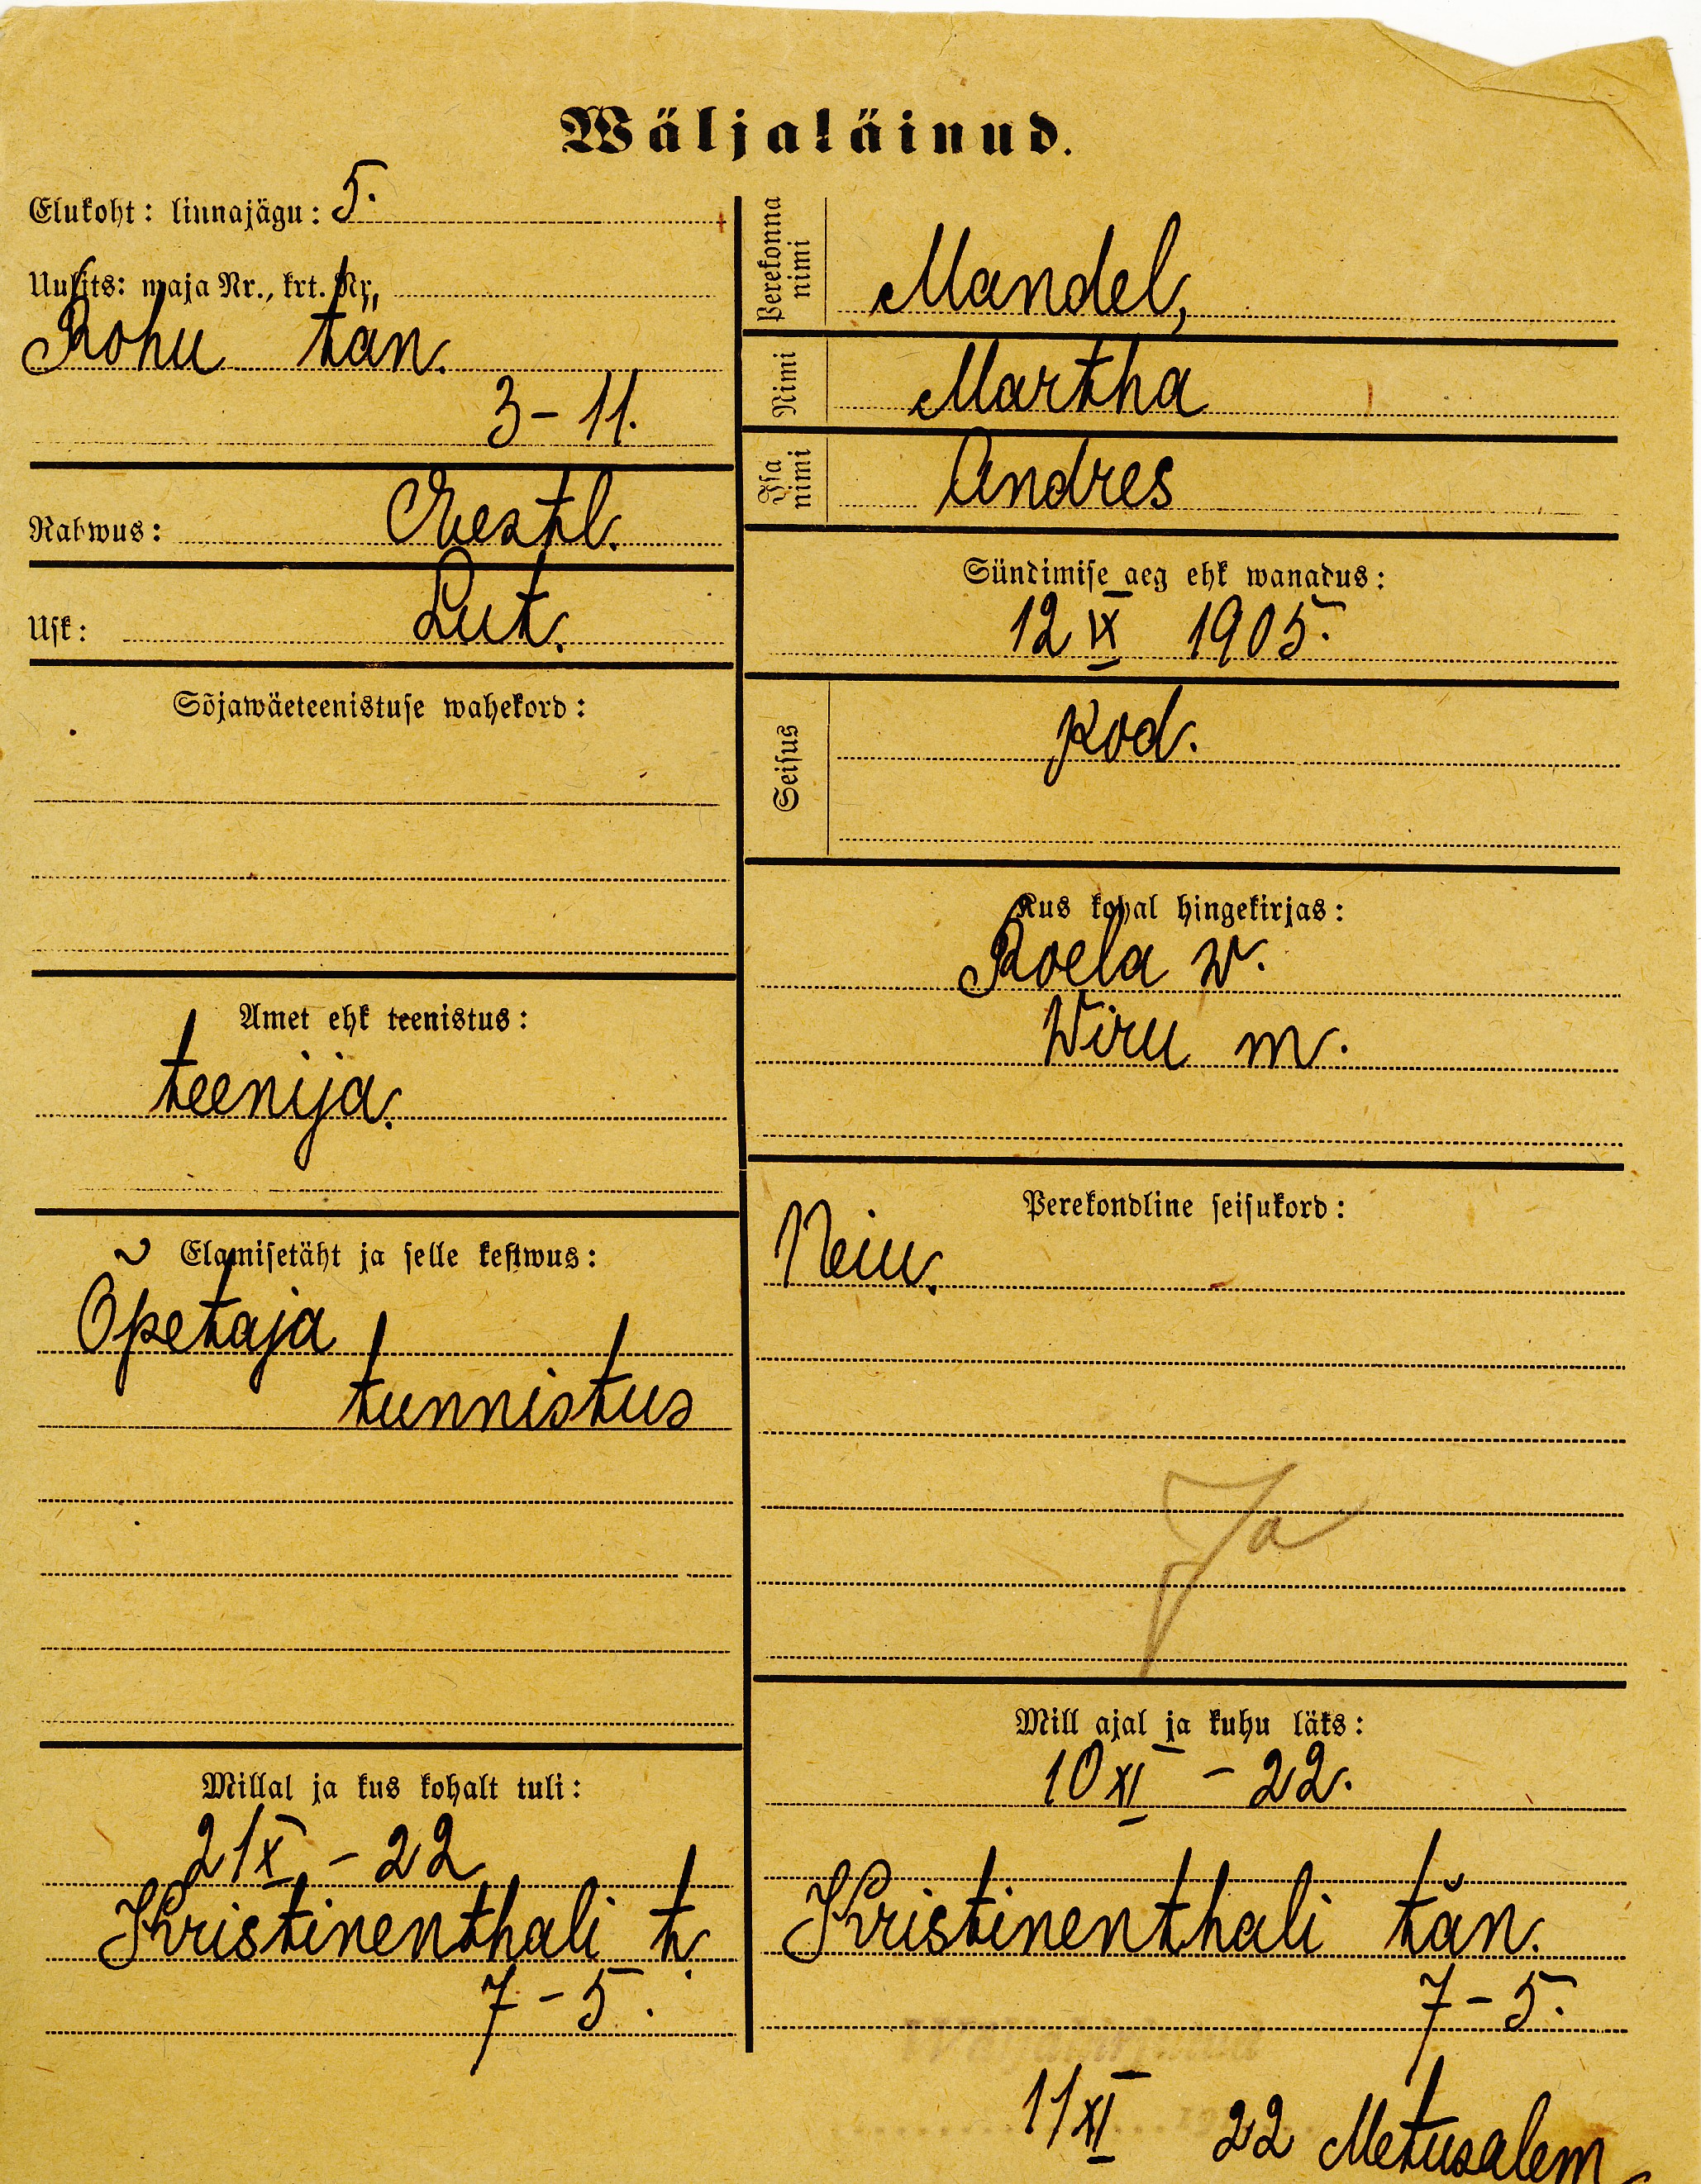 Wäljaläinud.
Elukoht: linnajägu: 5.
Uulits: maja Nr., krt. Nr.
Rohu tän.
3 – 11.
Rahwus: Eestl.
Usk: Lut.
Sõjawäeteenistuse wahekord:
Amet ehk teenistus:
teenija.
Elamisetäht ja selle kestwus:
Õpetaja
tunnistus
Millal ja kus kohalt tuli:
21 X – 22
Kristinenthali t.
7 – 5.
Perekonna nimi Mandel,
Nimi Martha
Isa nimi Andres
Sündimise aeg ehk wanadus:
12 IX 1905.
Seisus kod.
Kus kohal hingekirjas:
Roela w.
Wiru m.
Perekondline seisukord:
Neiu.
Ja
Mill ajal ja kuhu läks:
10 XI – 22.
Kristinenthali tän.
7 – 5.
11 XI 22 Metusalem